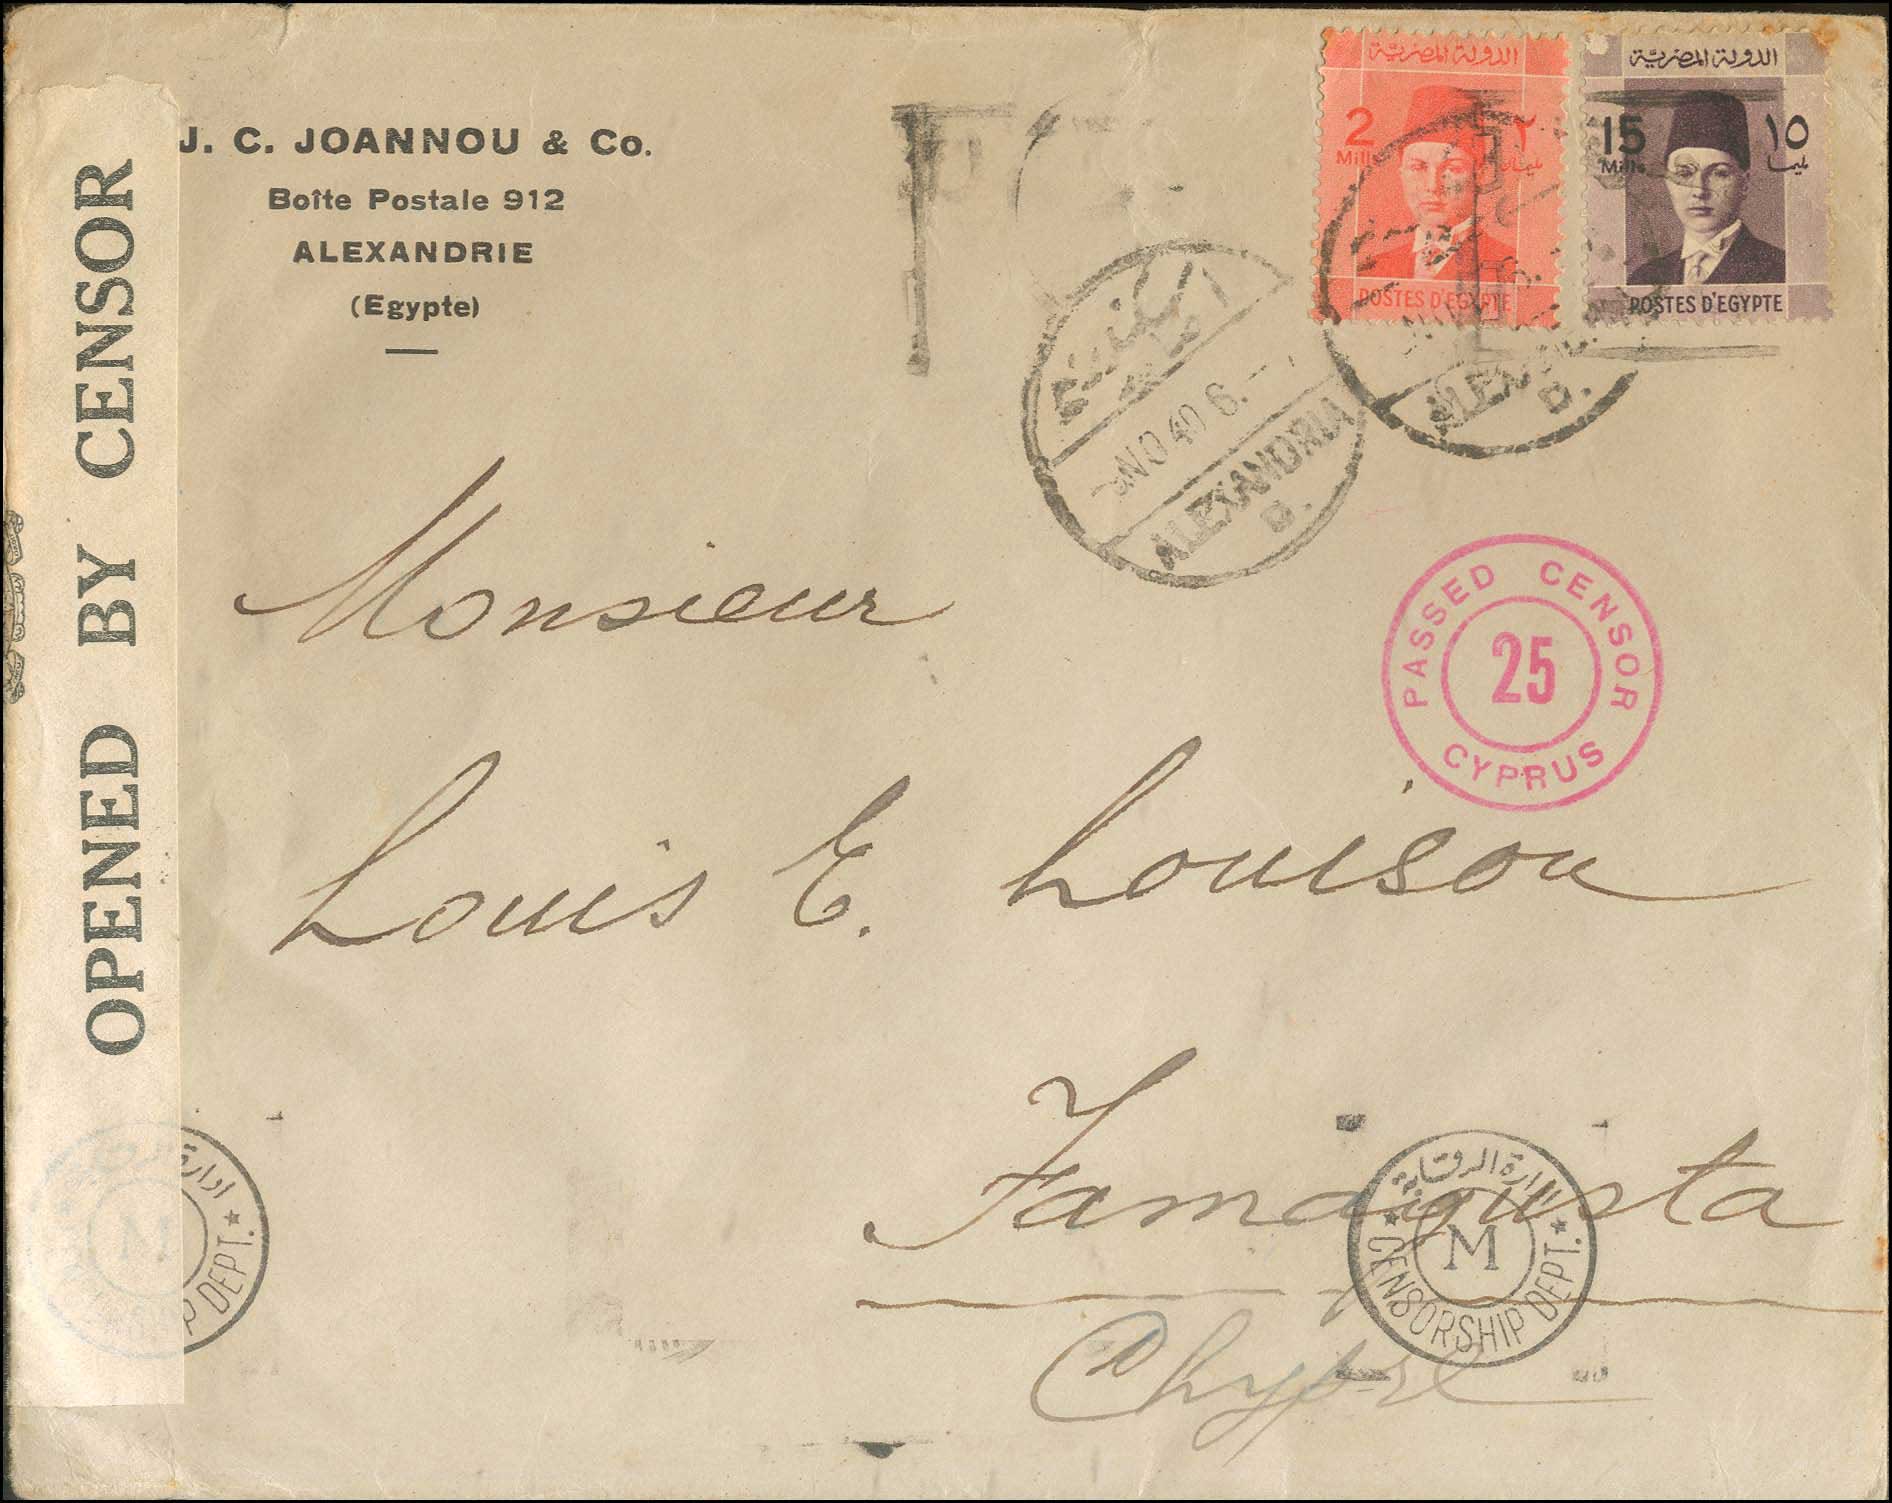 OPENED BY CENSOR
J. C. JOANNOU & Co.
Boîte Postale 912
ALEXANDRIE
(Egypte)
الدولة المصرية
2 ٢
Mills
POSTES D'EGYPTE
الدولة المصرية
15 ١٥
Mills
POSTES D'EGYPTE
NO 40 6.
ALEXANDRIA
D.
D.
PASSED CENSOR
25
CYPRUS
Monsieur
Louis E. Louisou
Famagusta
Chypre
ادارة الرقابة
M
CENSORSHIP DEPT.
ادارة
M
DEPT.